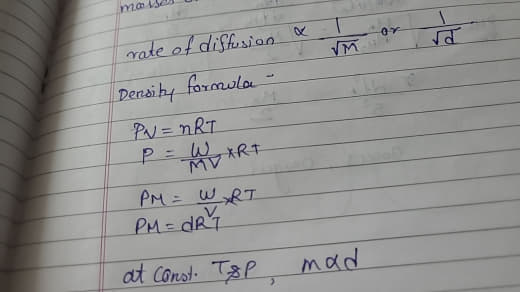 masses
rate of diffusion ∝ 1/√M or 1/√d
Density formula -
PV = nRT
P = W/MV × RT
PM = W/V × RT
PM = dRT
at Const. T & P, m α d